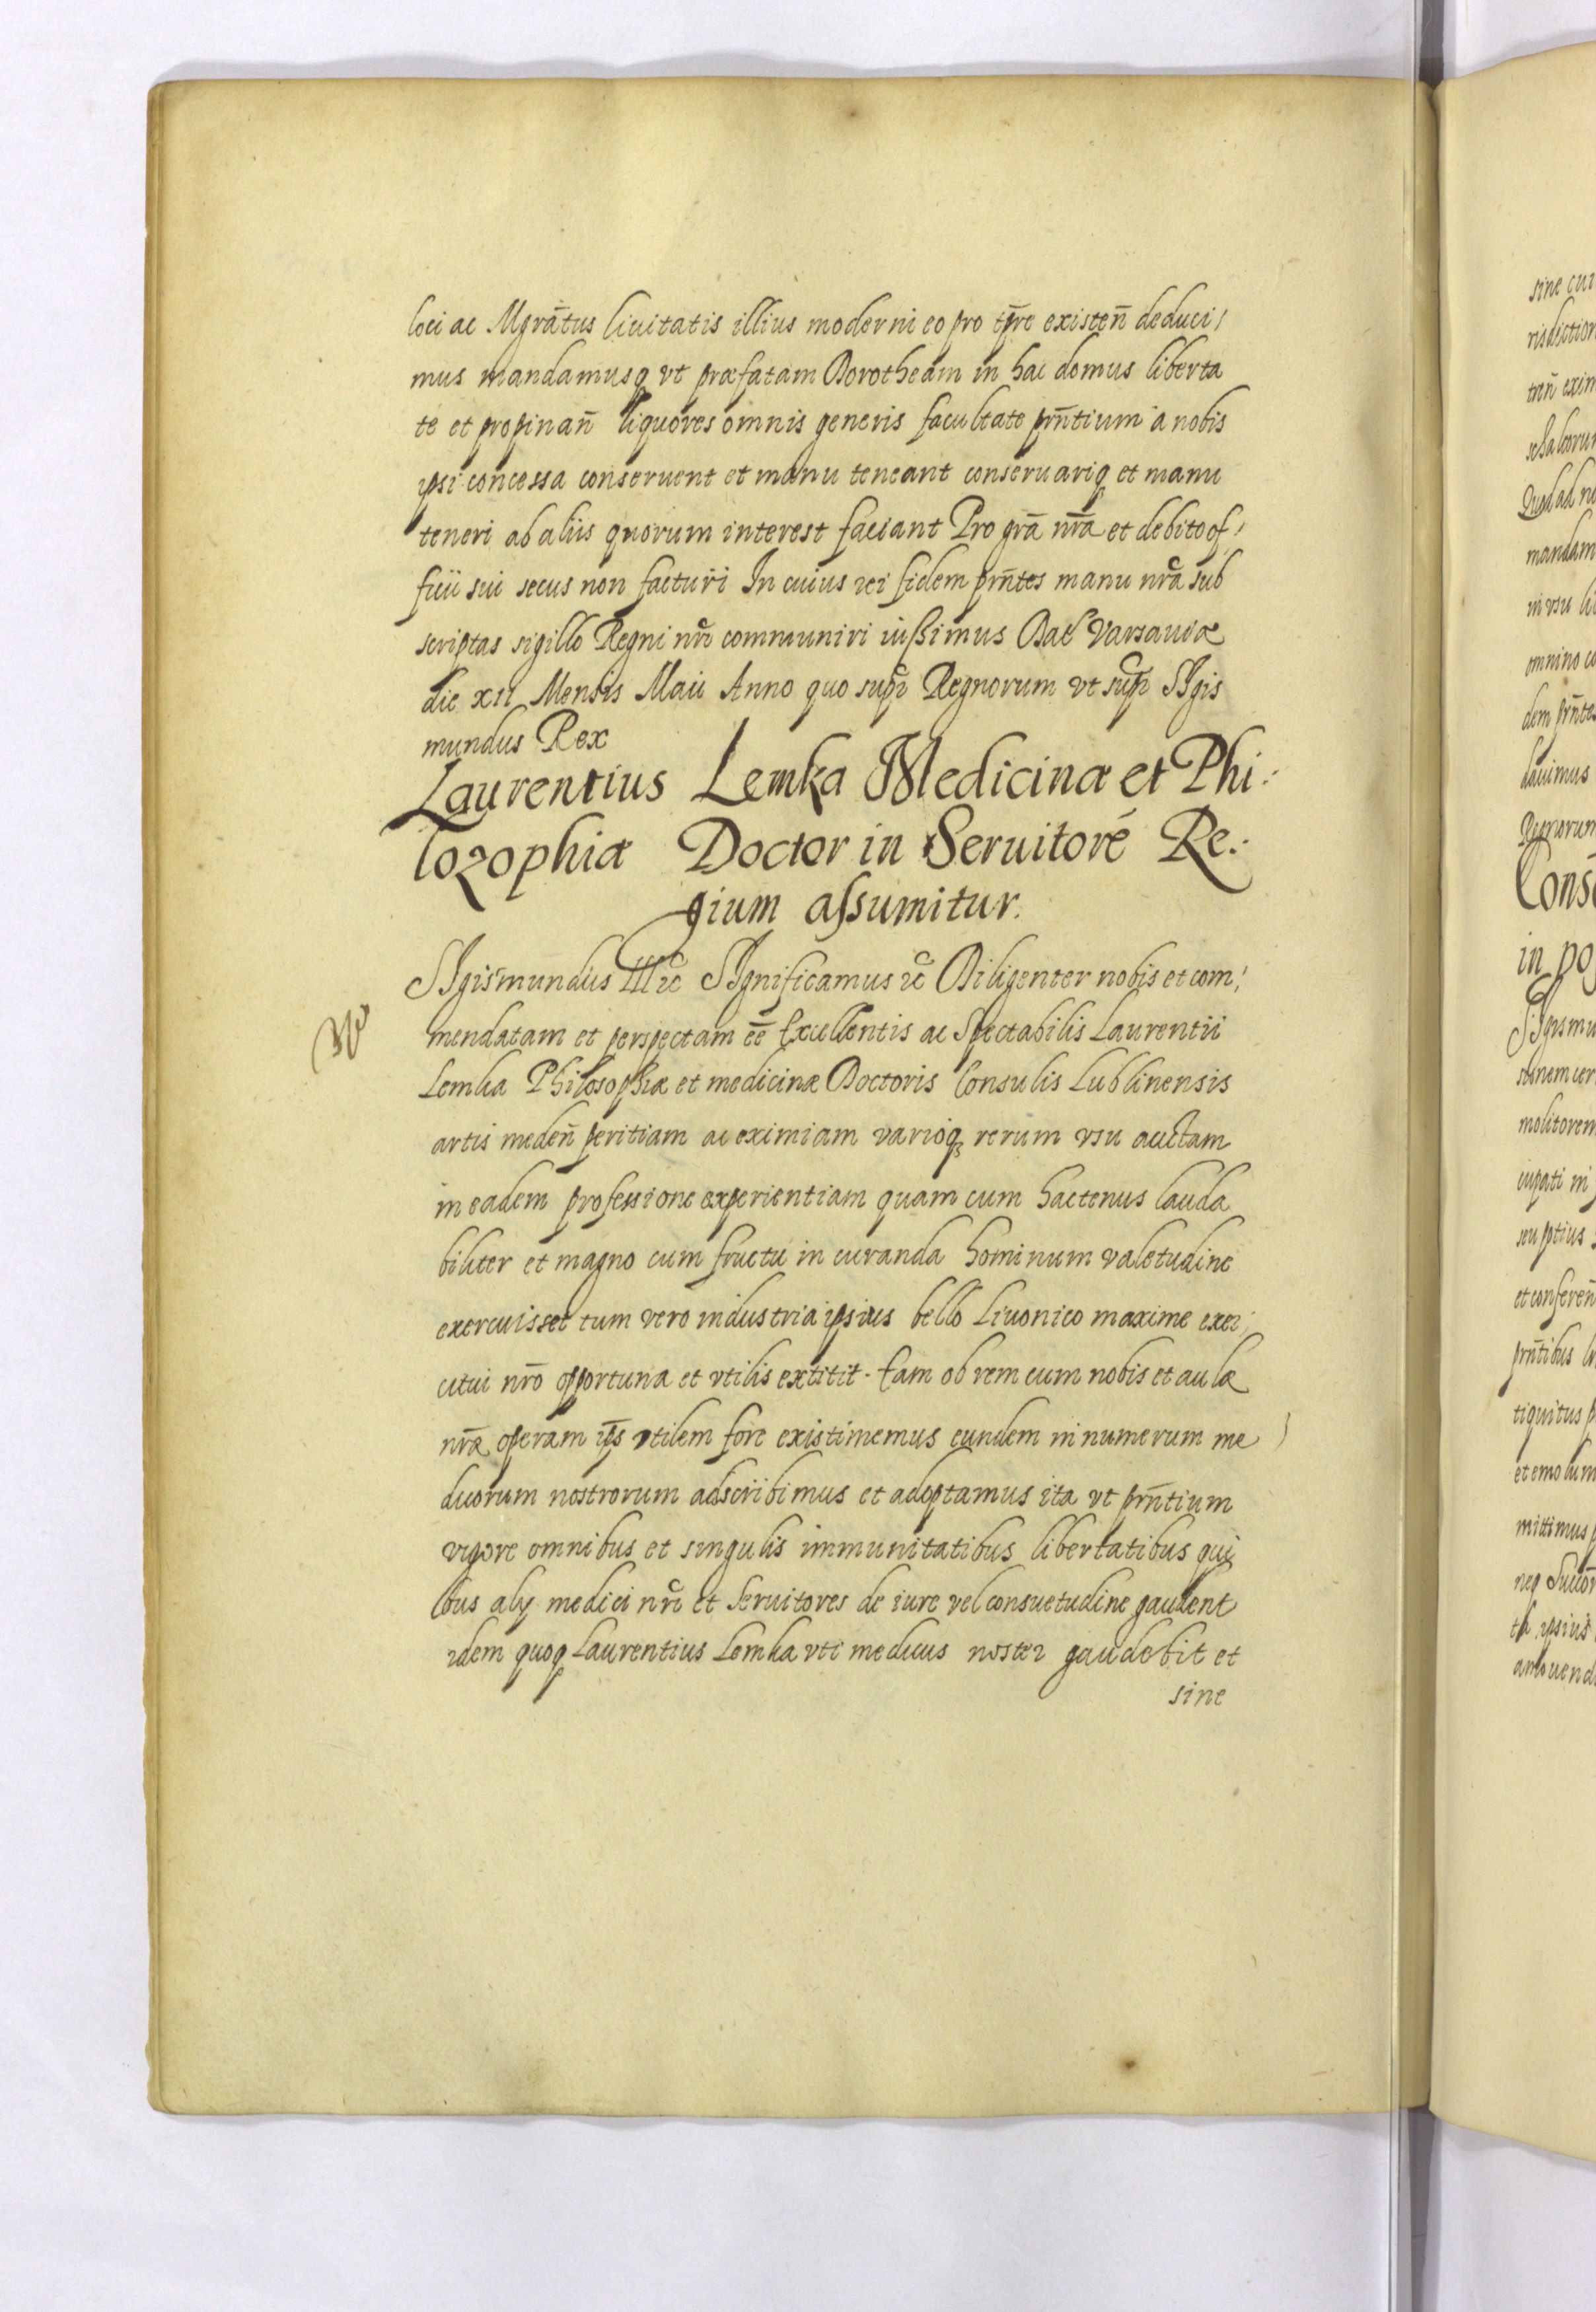 loci ac Mgrātus Ciuitatis illius moderni eo pro tp̄re existen̄ deduci,
mus mandamusq vt præfatam Dorotheam in hac domus liberta
te et propinan̄ liquores omnis generis facultate prn̄tium a nobis
ipsi concessa conseruent et manu teneant conseruariq et manu
teneri ab aliis quorum interest faciant Pro grā nr̄a et debito of,
ficii sui secus non facturi In cuius rei fidem prn̄tes manu nr̄a sub
scriptas sigillo Regni nr̄i communiri iussimus Dat Varsauiæ
die XII Mensis Maii Anno quo supr̄ Regnorum vt supr̄ SIgis
mundus Rex
Laurentius Lemka Medicinæ et Phi:
lozophiæ Doctor in Seruitoré Re:
gium assumitur.
SIgismundus III ꝛc SIgnificamus ꝛc Diligenter nobis et com,
mendatam et perspectam ee̅ Excellentis ac Spectabilis Laurentii
Lemka Philosophiæ et medicinæ Doctoris Consulis Lublinensis
artis meden̄ peritiam ac eximiam varioq rerum vsu auctam
in eadem professione experientiam quam cum hactenus lauda
biliter et magno cum fructu in curanda hominum valetudine
exercuisset tum vero industria ipsius bello Liuonico maxime exer,
citui nr̄o opportuna et vtilis extitit. Eam ob rem cum nobis et aulæ
nr̄æ operam ips̄ vtilem fore existimemus eundem in numerum me
dicorum nostrorum adscribimus et adoptamus ita vt prn̄tium
vigore omnibus et singulis immunitatibus libertatibus qui
bus alÿ medici nr̄i et Seruitores de iure vel consuetudine gaudent
idem quoq Laurentius Lemka vti medicus noster gaudebit et
sine